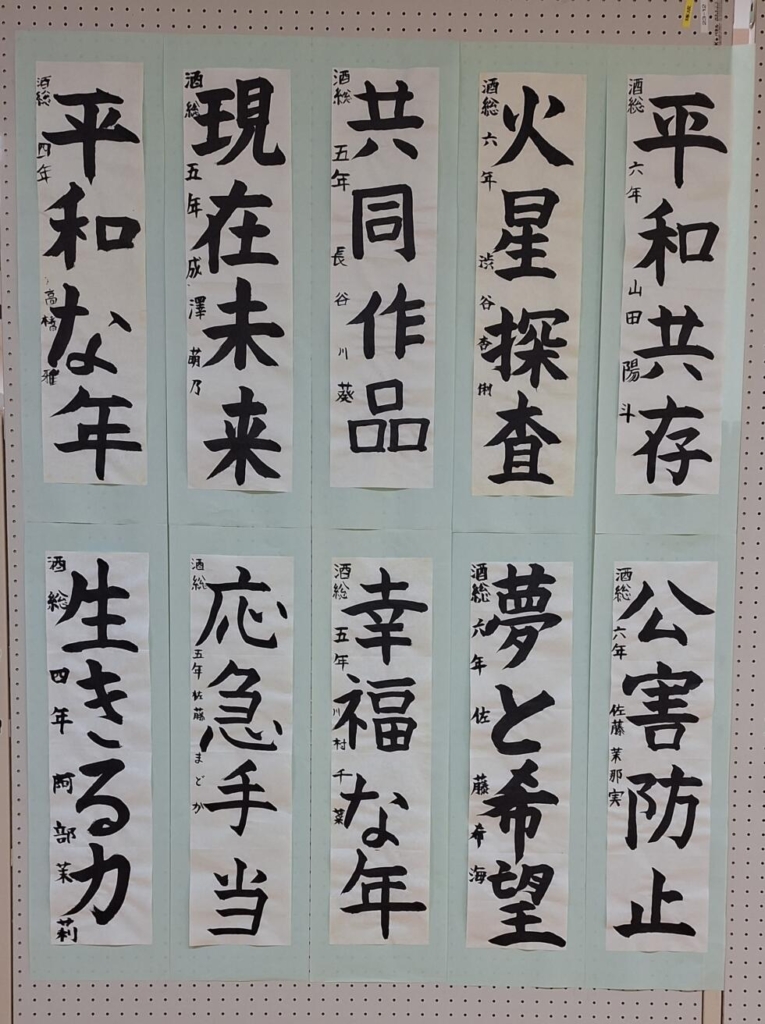 平和共存
酒総 六年 山田陽斗
火星探査
酒総 六年 渋谷杏俐
共同作品
酒総 五年 長谷川葵
現在未来
酒総 五年 成澤萌乃
平和な年
酒総 四年 高橋雅
公害防止
酒総 六年 佐藤茉那実
夢と希望
酒総 六年 佐藤希海
幸福な年
酒総 五年 川村千葉
応急手当
酒総 五年 佐藤まどか
生きる力
酒総 四年 阿部茉莉